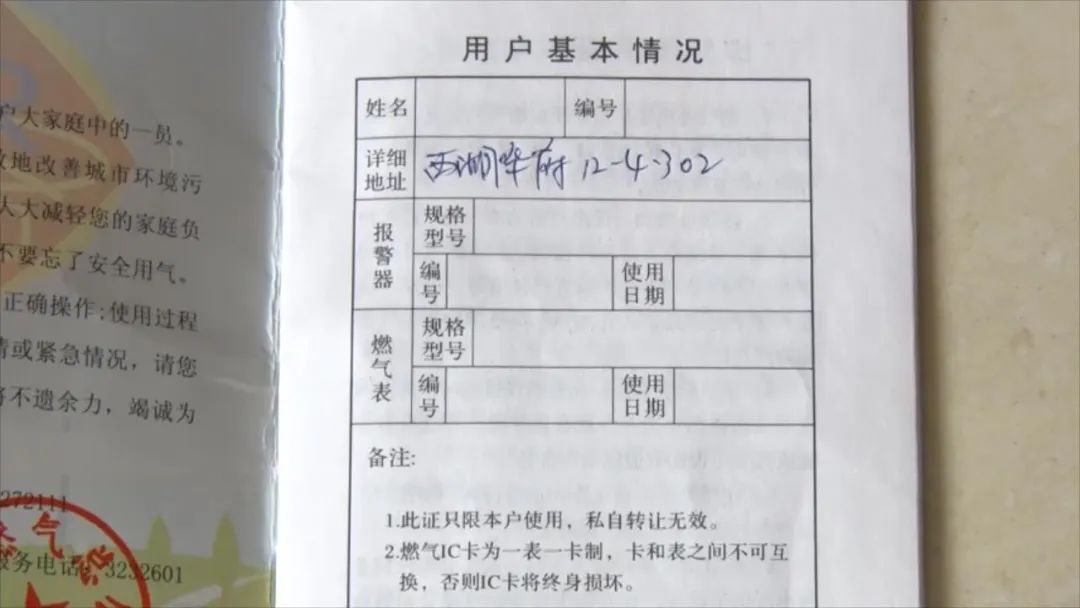 户大家庭中的一员。
地改善城市环境污
大大减轻您的家庭负
不要忘了安全用气。
正确操作;使用过程
情或紧急情况，请您
将不遗余力，竭诚为
272111
燃气
服务电话：3232601
用户基本情况
姓名 编号
详细地址 西湖华府 12-4-302
报警器
规格型号
编号 使用日期
燃气表
规格型号
编号 使用日期
备注:
1.此证只限本户使用，私自转让无效。
2.燃气IC卡为一表一卡制，卡和表之间不可互
换，否则IC卡将终身损坏。